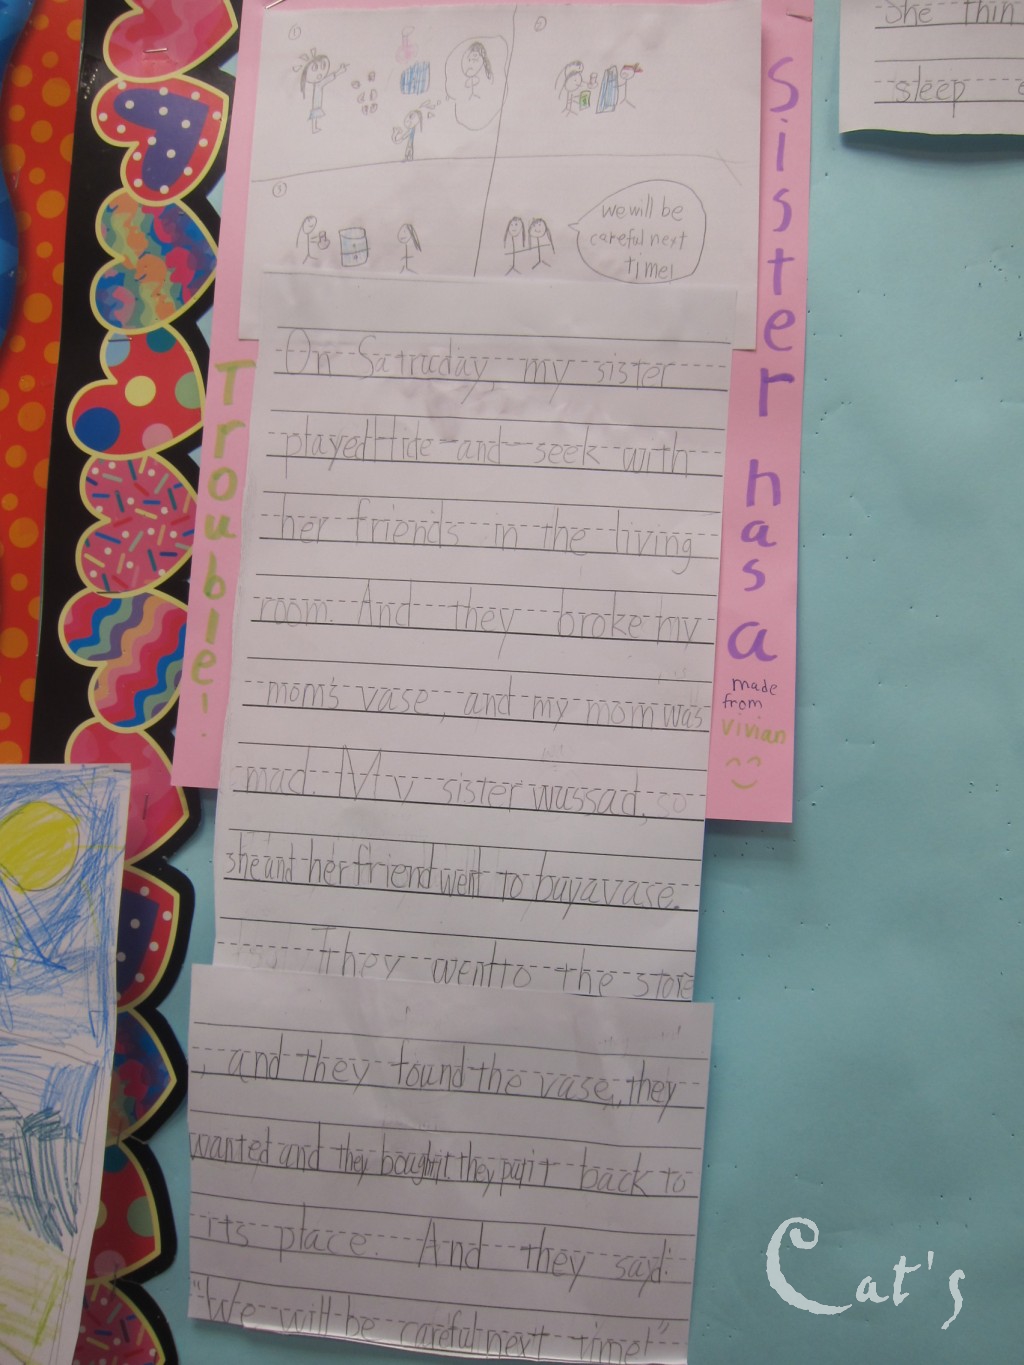 She thin
sleep
①
②
③
we will be
careful next
time!
Sister has a
Trouble!
made
from
Vivian
On Satruday, my sister
played hide-and-seek with
her friends in the living
room. And they broke my
mom's vase, and my mom was
mad. My sister was sad, so
she and her friend went to buy a vase.
They went to the store
, and they found the vase, they
wanted and they bought it. they put it back to
its place. And they said:
"We will be careful next time!"
Cat's